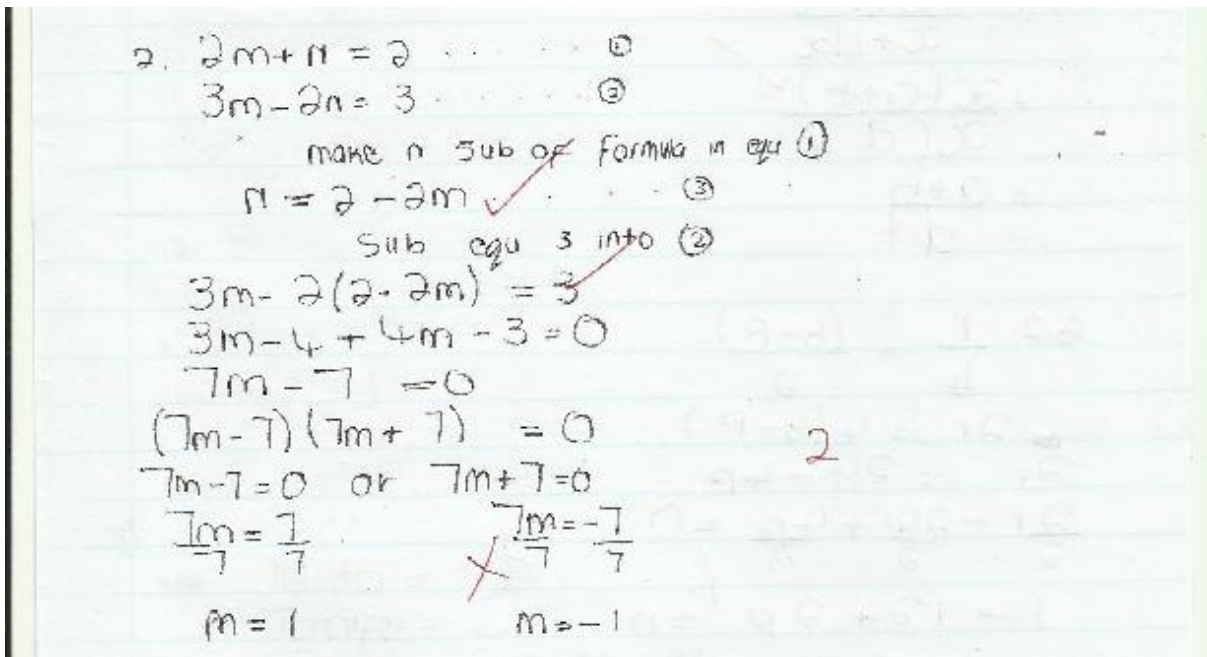 2. 2m + n = 2 . . . . . ①
3m - 2n = 3 . . . . . ②
make n sub of formula in equ ①
n = 2 - 2m . . . ③
Sub equ 3 into ②
3m - 2(2 - 2m) = 3
3m - 4 + 4m - 3 = 0
7m - 7 = 0
(7m - 7)(7m + 7) = 0
2
7m - 7 = 0 or 7m + 7 = 0
7m/7 = 7/7 7m/7 = -7/7
m = 1 m = -1